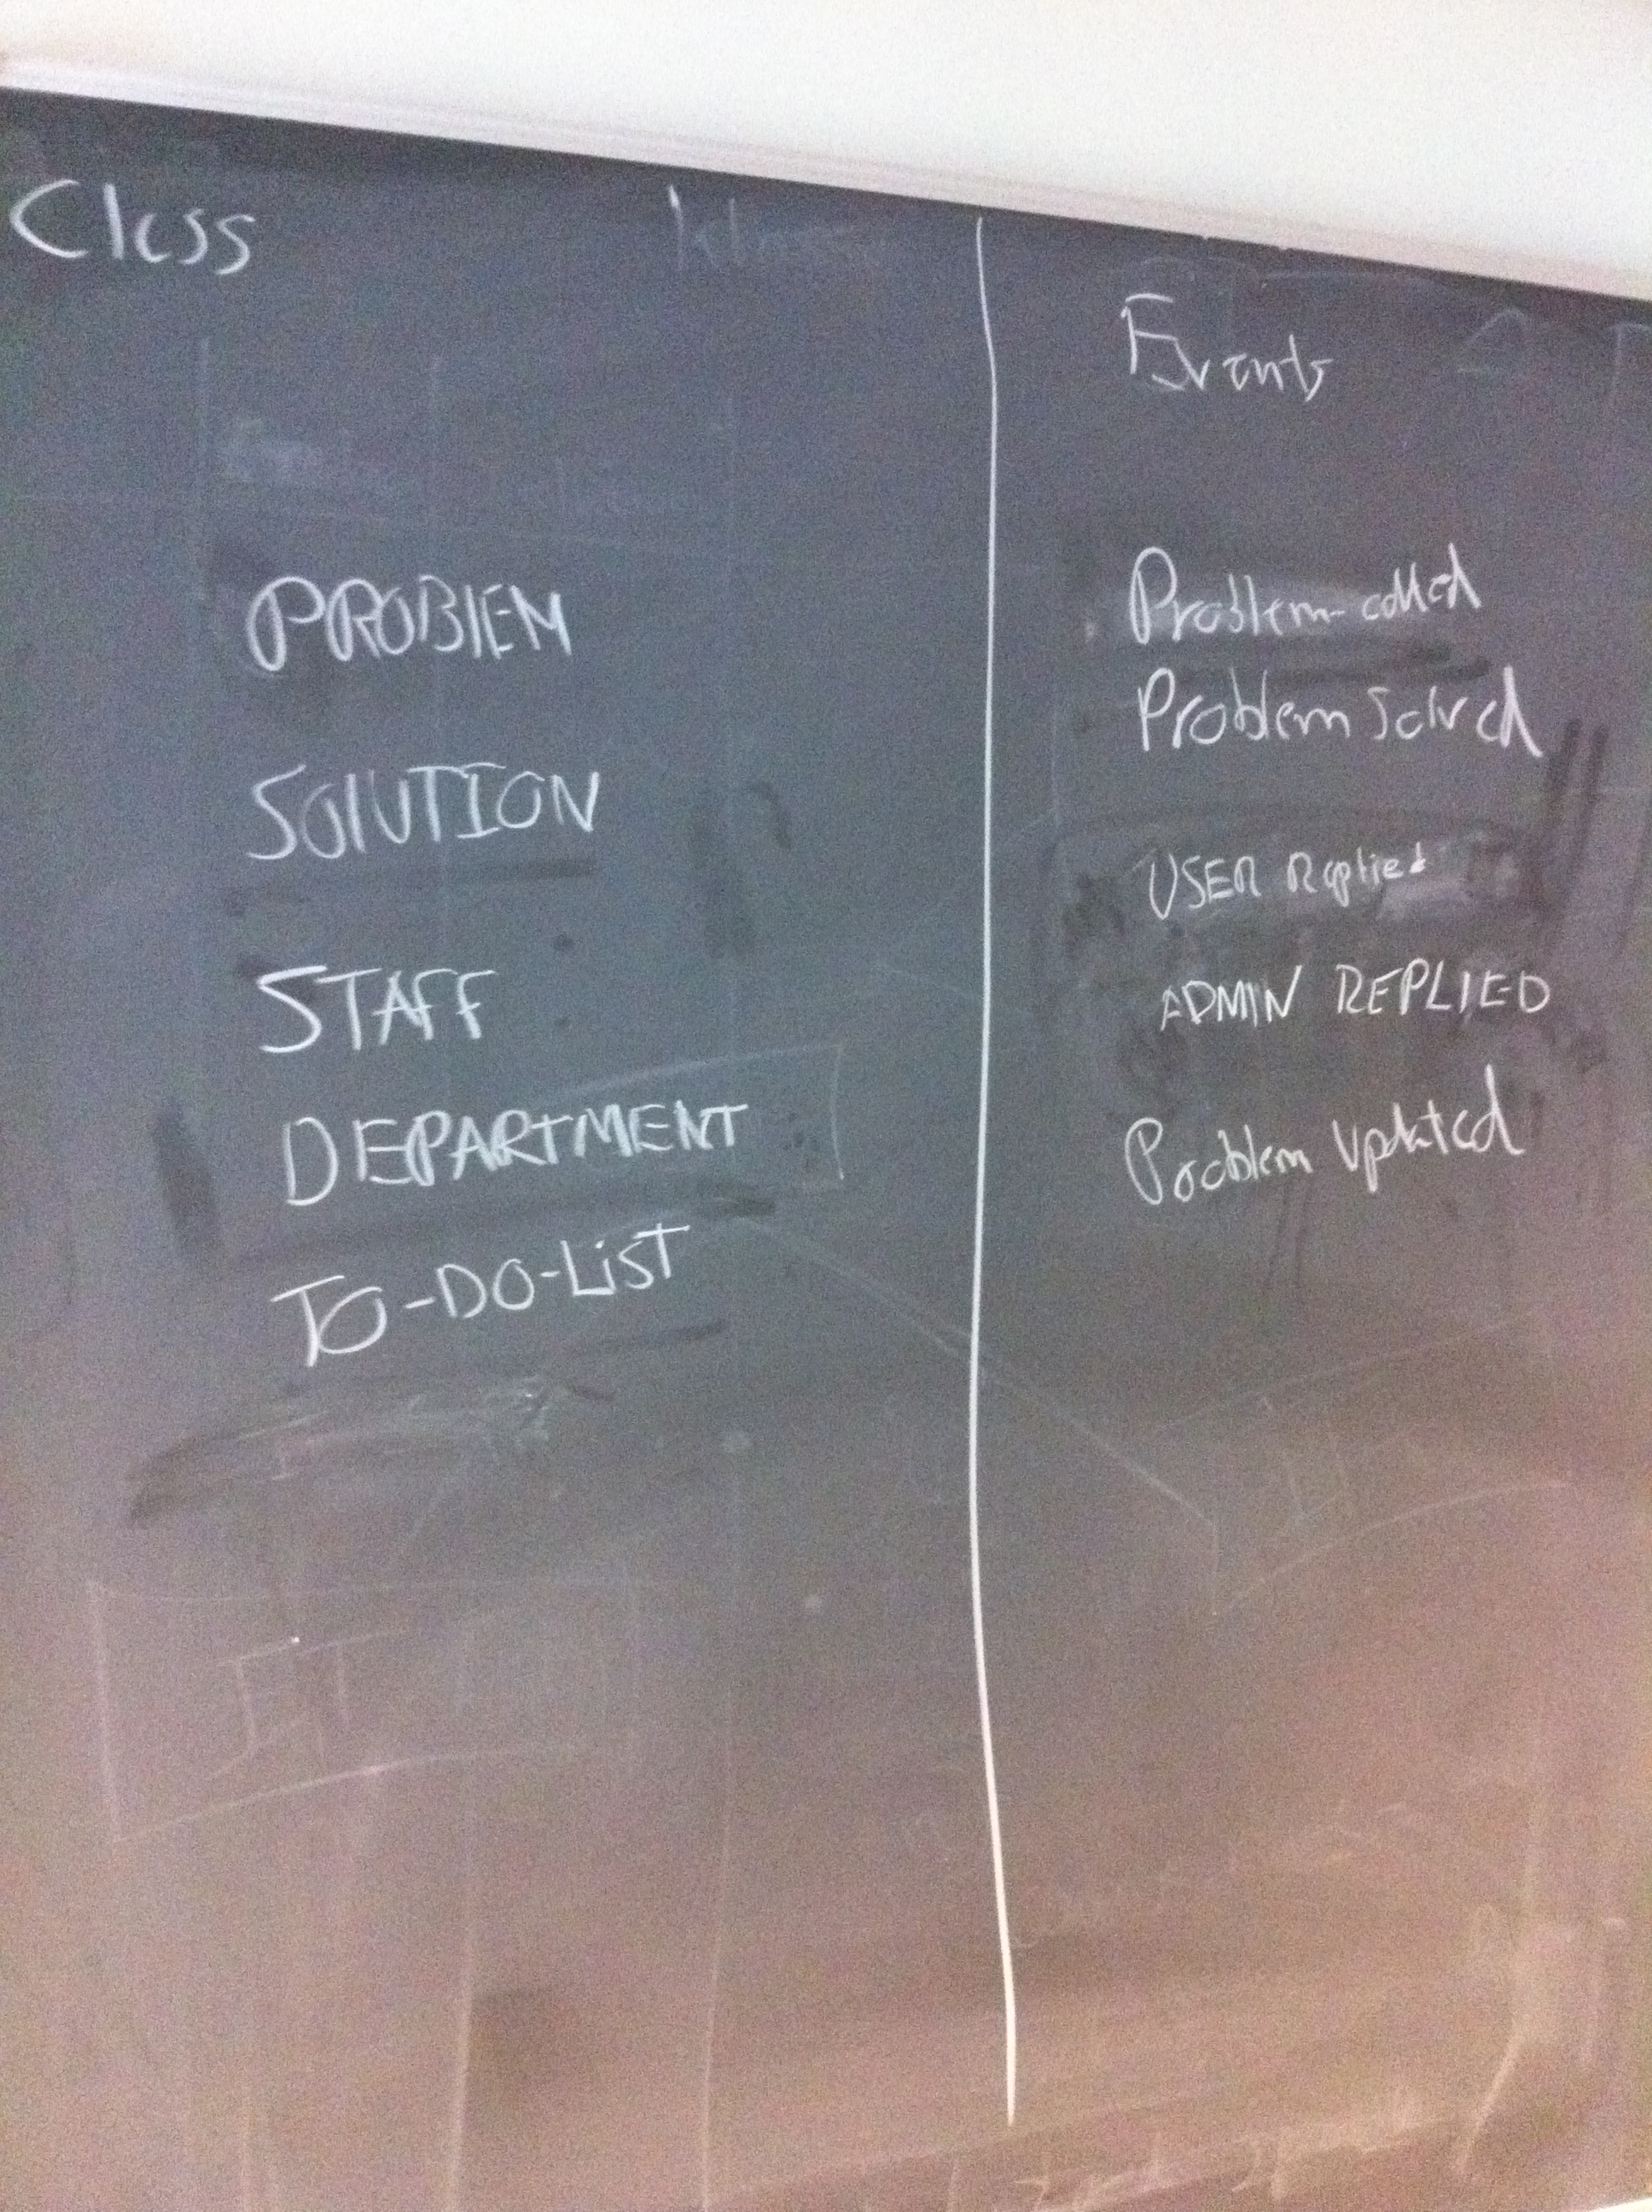 Class
Events
PROBLEM
SOLUTION
STAFF
DEPARTMENT
TO-DO-LIST
Problem added
Problem Solved
USER Replied
ADMIN REPLIED
Problem Updated